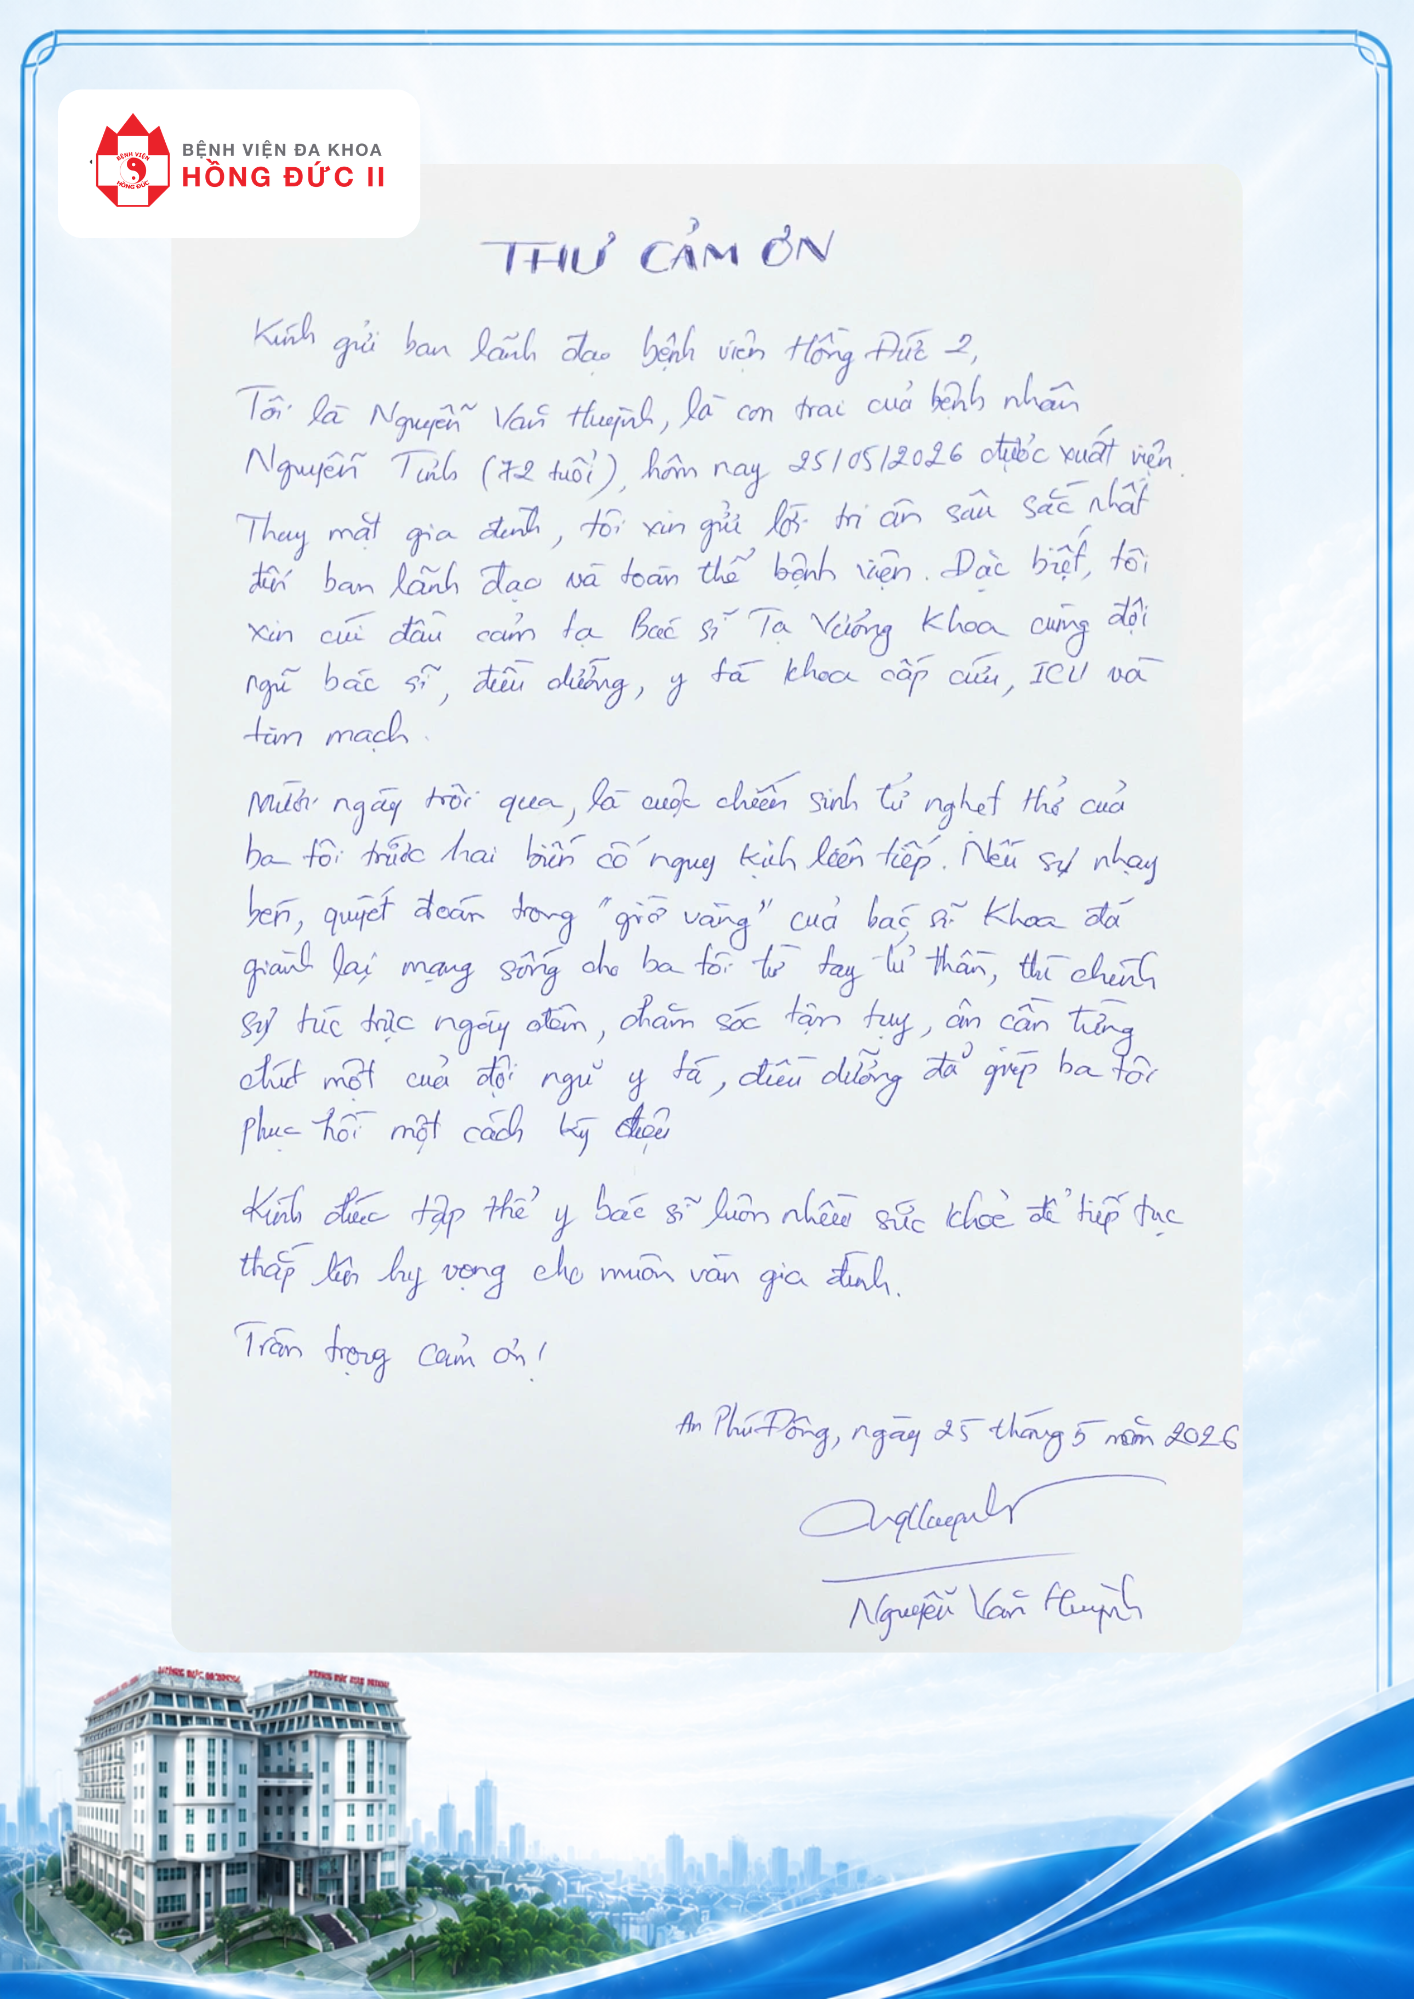 BỆNH VIỆN ĐA KHOA
HỒNG ĐỨC II
BỆNH VIỆN
HỒNG ĐỨC
THƯ CẢM ƠN
Kính gửi ban lãnh đạo bệnh viện Hồng Đức 2,
Tôi là Nguyễn Văn Huỳnh, là con trai của bệnh nhân
Nguyễn Tỉnh (72 tuổi), hôm nay 25/05/2026 được xuất viện.
Thay mặt gia đình, tôi xin gửi lời tri ân sâu sắc nhất
đến ban lãnh đạo và toàn thể bệnh viện. Đặc biệt, tôi
xin cúi đầu cảm tạ Bác sĩ Tạ Vương Khoa cùng đội
ngũ bác sĩ, điều dưỡng, y tá khoa cấp cứu, ICU và
tim mạch.
Mười ngày trôi qua, là cuộc chiến sinh tử nghẹt thở của
ba tôi trước hai biến cố nguy kịch liên tiếp. Nếu sự nhạy
bén, quyết đoán trong "giờ vàng" của bác sĩ Khoa đã
giành lại mạng sống cho ba tôi từ tay tử thần, thì chính
sự túc trực ngày đêm, chăm sóc tận tụy, ân cần từng
chút một của đội ngũ y tá, điều dưỡng đã giúp ba tôi
phục hồi một cách kỳ diệu
Kính chúc tập thể y bác sĩ luôn nhiều sức khoẻ để tiếp tục
thắp lên hy vọng cho muôn vàn gia đình.
Trân trọng cảm ơn!
An Phú Đông, ngày 25 tháng 5 năm 2026
Nguyễn Văn Huỳnh